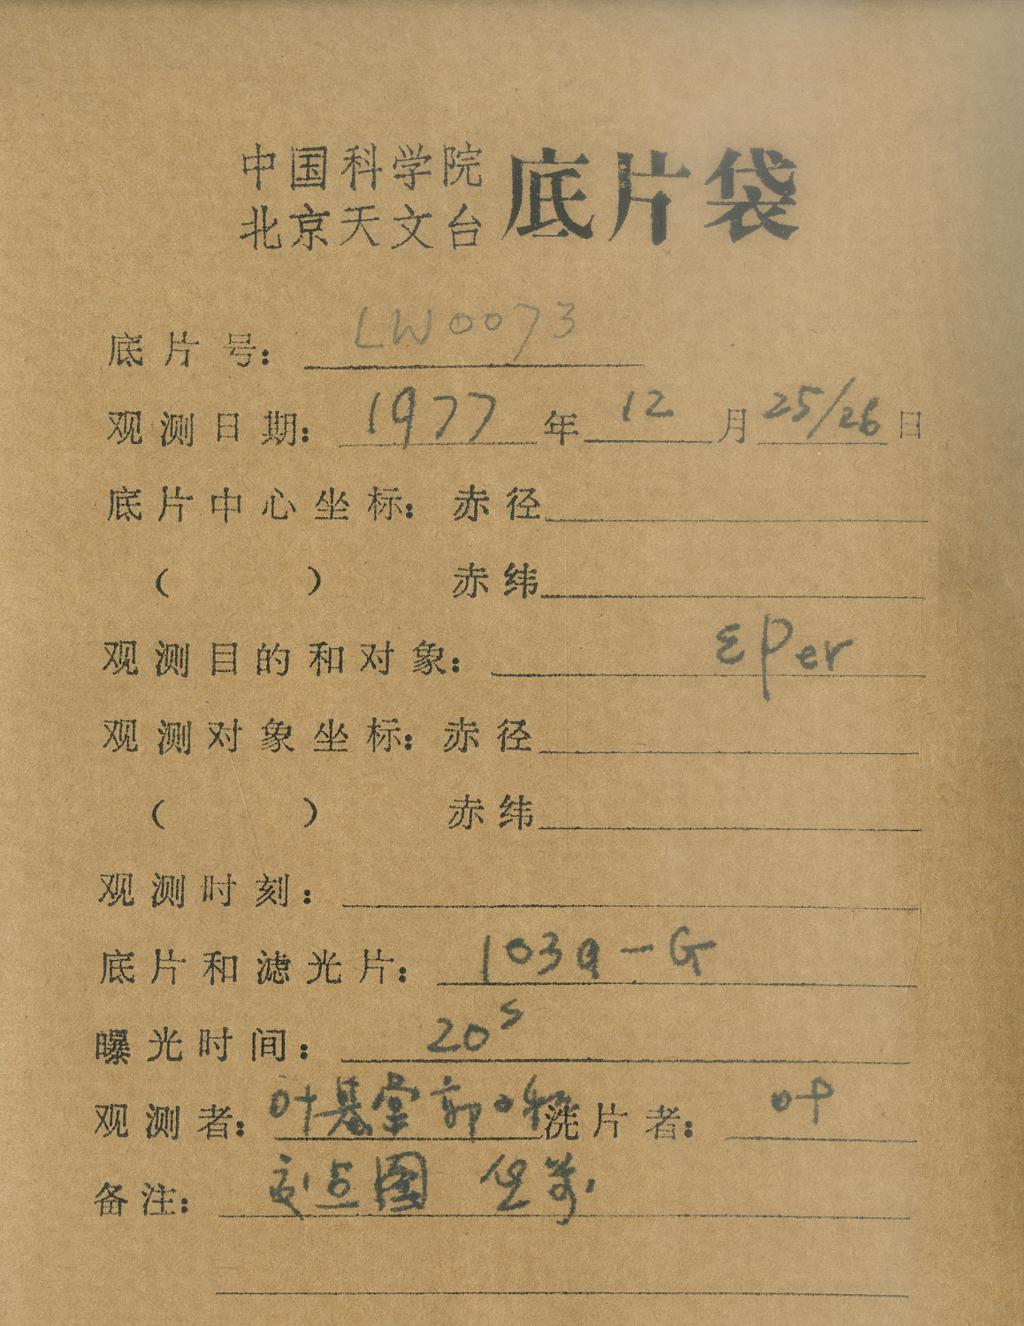 中国科学院
北京天文台 底片袋
底片号: LW0073
观测日期: 1977年12月25/26日
底片中心坐标: 赤径
( ) 赤纬
观测目的和对象: εPer
观测对象坐标: 赤径
( ) 赤纬
观测时刻:
底片和滤光片: 103a-G
曝光时间: 20s
观测者: 叶基棠 郭 洗片者: 叶
备注: 图